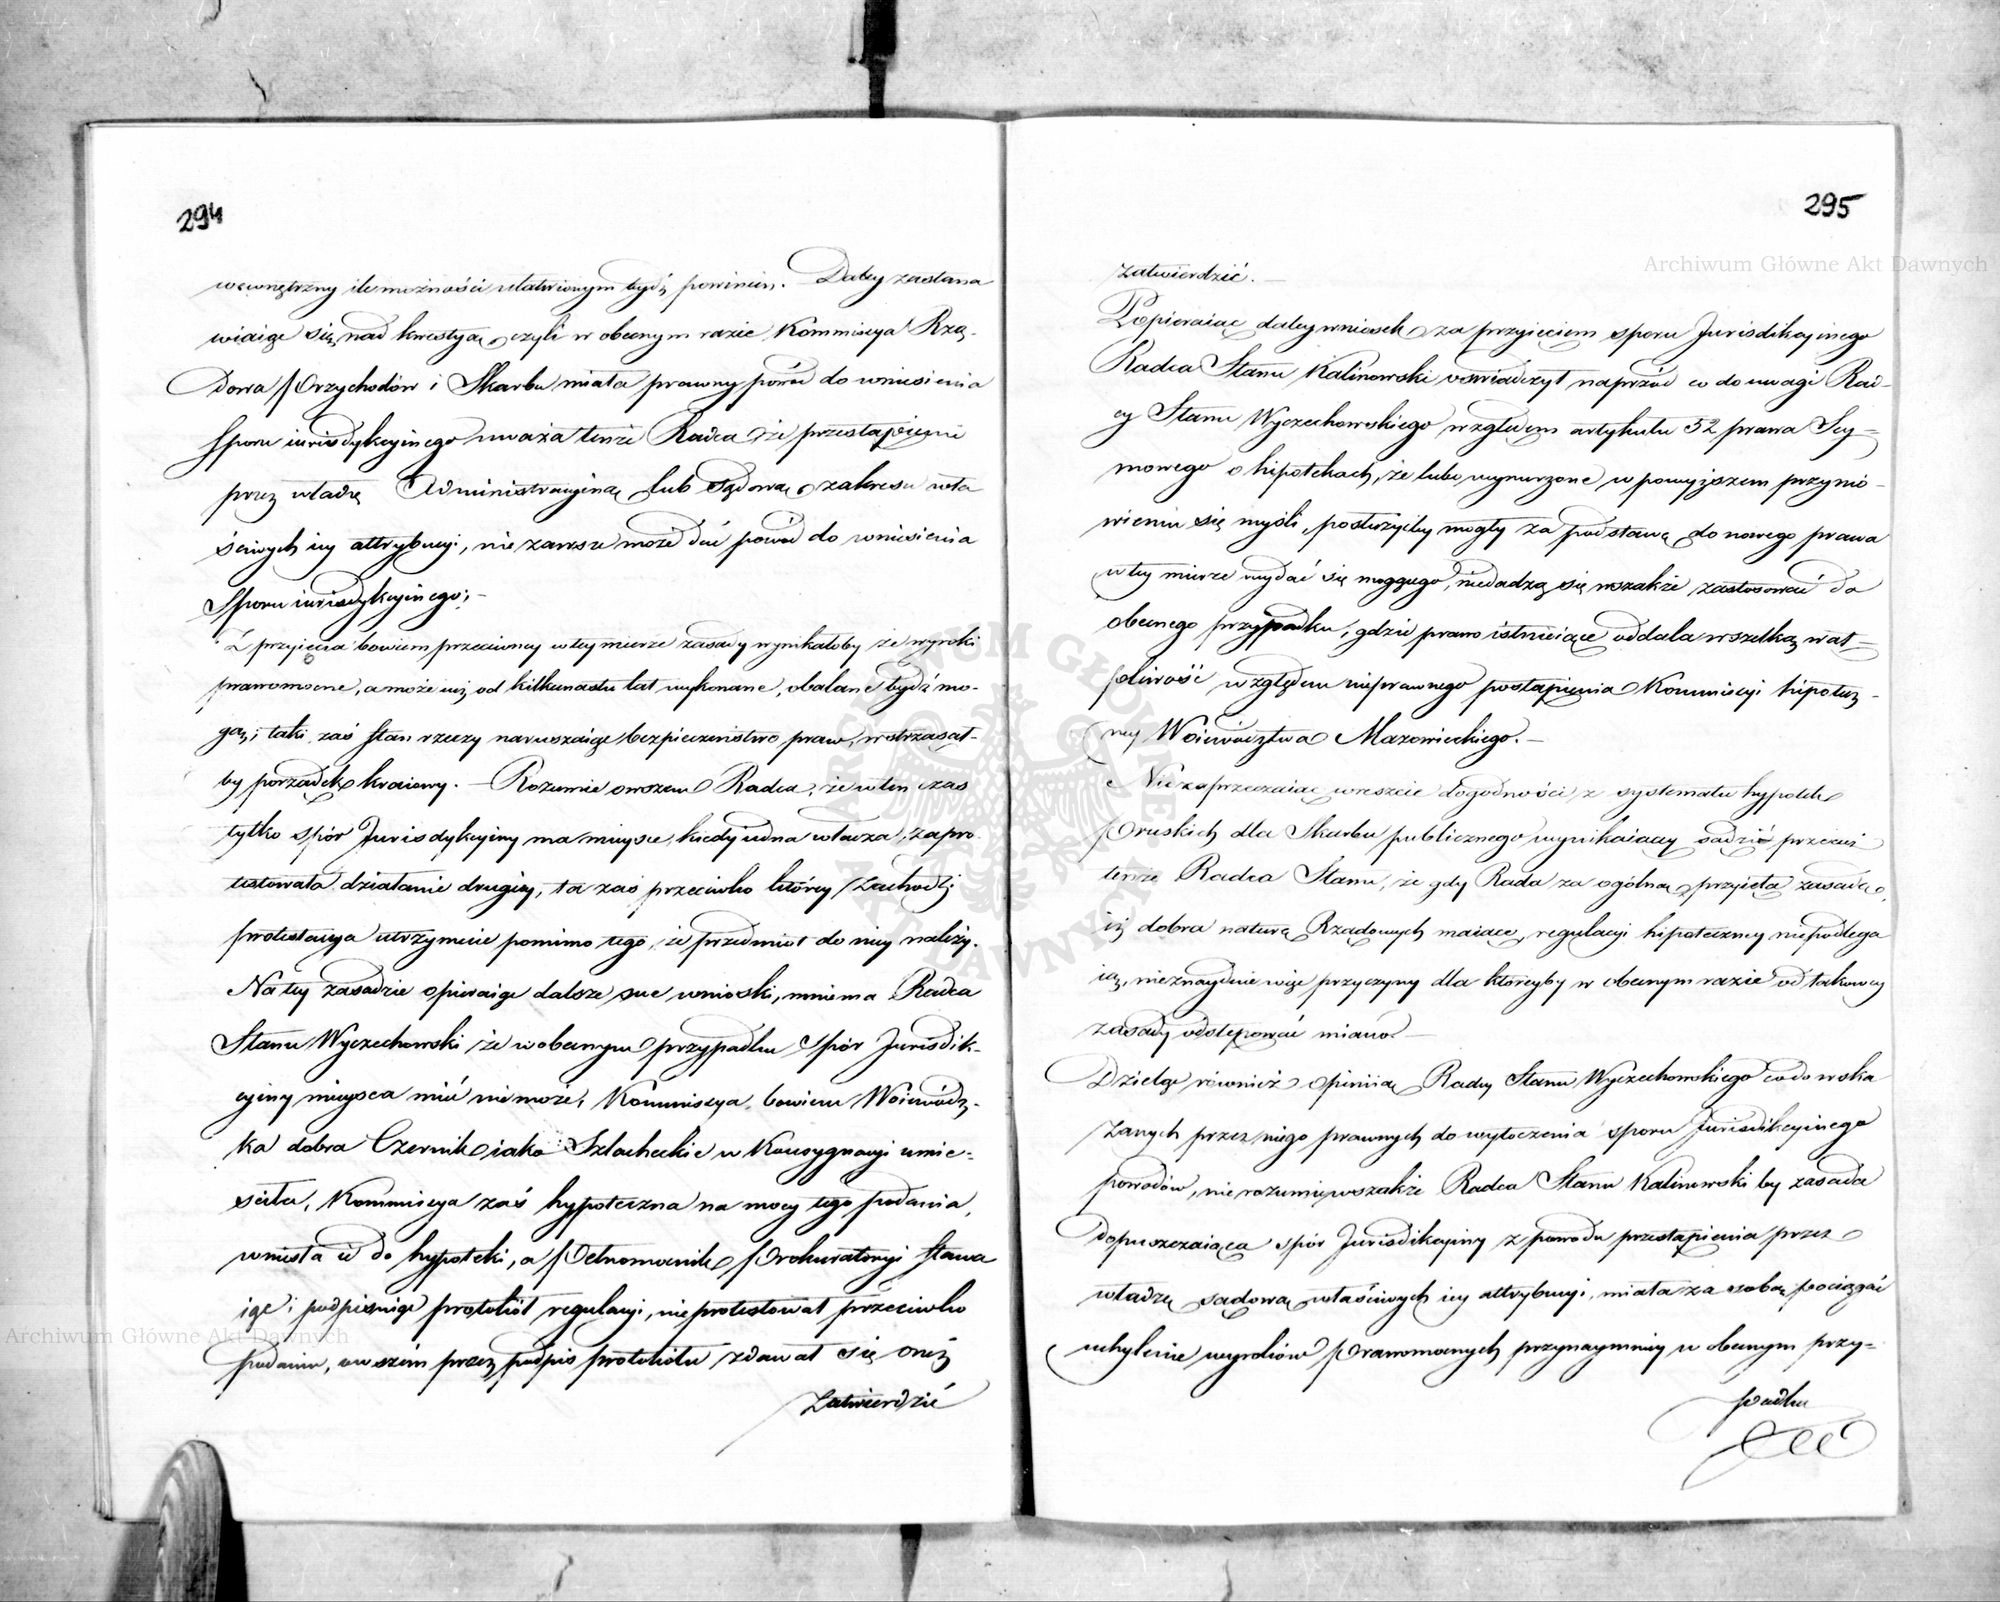 294
wewnętrzny ile możności ułatwionym bydź powinien. Daley zastana
wiaiąc się nad kwestyą, czyli w obecnym razie Kommissya Rzą-
dowa Przychodów i Skarbu miała prawny powód do wniesienia
Sporu iurisdykcyinego uważa tenże Radca że przestąpienie
przez władzę Administracyiną lub Sądową zakresu wła
ściwych iey attrybucyi, nie zawsze może dać powód do wniesienia
Sporu iurisdykcyinego; –
Z przyięcia bowiem przeciwney w tey mierze zasady wynikałoby że wyroki
prawomocne, a może iuż od kilkunastu lat wykonane, obalane bydź mo-
gą; taki zaś stan rzeczy naruszaiąc bezpieczeństwo praw, wstrząsał-
by porządek kraiowy. – Rozumie owszem Radca, że w ten czas
tylko spór Jurisdykcyiny ma mieysce, kiedy iedna władza zapro
testowała działanie drugiey, ta zaś przeciwko którey zachodzi
protestacya utrzymuie pomimo tego, że przedmiot do niey należy.
Na tey zasadzie opieraiąc dalsze swe wnioski, mniema Radca
Stanu Wyczechowski że w obecnym przypadku spór Jurisdik-
cyiny mieysca mieć nie może, Kommissya bowiem Woiewódz-
ka dobra Czernik iako Szlacheckie w Konsygnacyi umie-
ściła, Kommissya zaś hypoteczna na mocy tego podania,
wniosła ie do hypoteki, a Pełnomocnik Prokuratoryi stawa
iąc i podpisuiąc protokół regulacyi, nie protestował przeciwko
podaniu, owszem przez podpis protokółu zdawał się oneż
zatwierdzić
295
zatwierdzić. –
Popieraiąc daley wniosek za przyięciem sporu Jurisdikcyinego
Radca Stanu Kalinowski oświadczył naprzód co do uwagi Rad-
cy Stanu Wyczechowskiego względem artykułu 52 prawa Sey-
mowego o hipotekach, że lubo wynurzone w powyższem przymó-
wieniu się myśli, posłużyćby mogły za podstawę do nowego prawa
w tey mierze wydać się mogącego, niedadzą się wszakże zastosować do
obecnego przypadku, gdzie prawo istnieiące oddala wszelką wąt-
pliwość względem nieprawnego postąpienia Kommissyi hipotecz-
ney Województwa Mazowieckiego. –
Niezaprzeczaiąc wreszcie dogodności z systematu hypotek
Pruskich dla Skarbu publicznego wynikaiącey sądzić przecież
tenże Radca Stanu, że gdy Rada za ogólną przyięła zasadę,
iż dobra naturę Rządowych maiące, regulacyi hipoteczney niepodlega
ią, nieznayduie więc przyczyny dla któreyby w obecnym razie od takowey
zasady odstępować miano. –
Dzieląc również opiniią Radcy Stanu Wyczechowskiego co do wska
zanych przez niego prawnych do wytoczenia sporu Jurisdikcyinego
powodów, nie rozumie wszakże Radca Stanu Kalinowski by zasada
dopuszczaiąca spór Jurisdikcyiny z powodu przestąpienia przez
władzę sądową właściwych iey attrybucyi, miała za sobą pociągać
uchylenie wyroków Prawomocnych przynaymniey w obecnym przy-
padku
Archiwum Główne Akt Dawnych
Archiwum Główne Akt Dawnych
ARCHIWUM GŁÓWNE AKT DAWNYCH